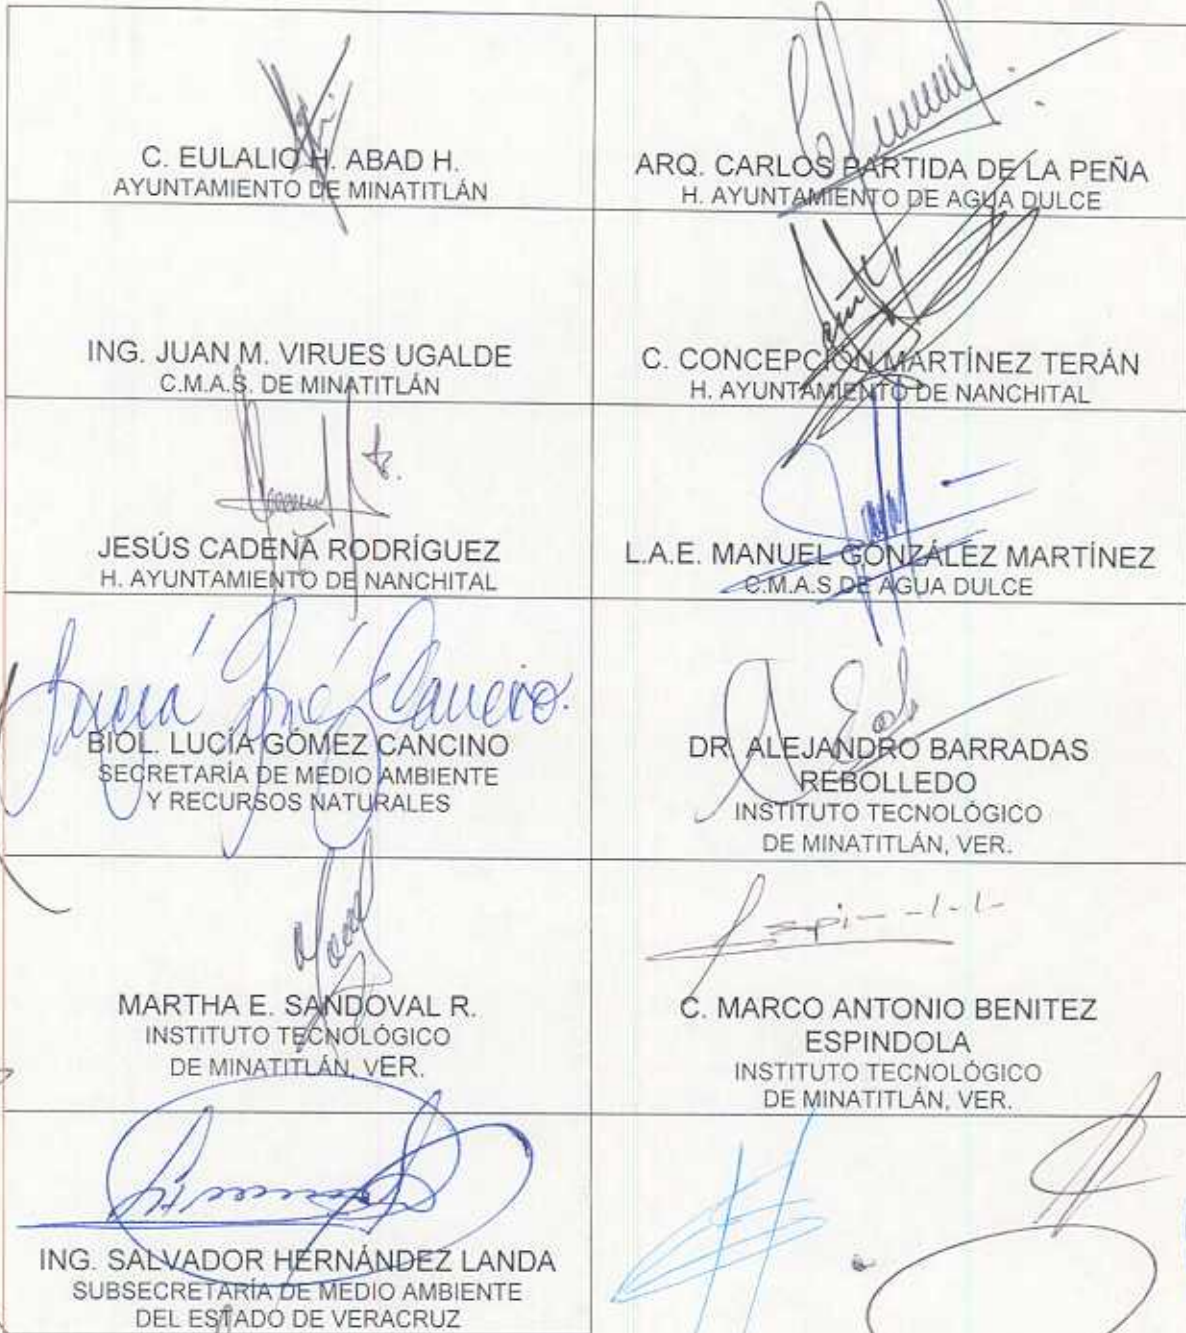 C. EULALIO H. ABAD H.
AYUNTAMIENTO DE MINATITLÁN
ARQ. CARLOS PARTIDA DE LA PEÑA
H. AYUNTAMIENTO DE AGUA DULCE
ING. JUAN M. VIRUES UGALDE
C.M.A.S. DE MINATITLÁN
C. CONCEPCIÓN MARTÍNEZ TERÁN
H. AYUNTAMIENTO DE NANCHITAL
JESÚS CADENA RODRÍGUEZ
H. AYUNTAMIENTO DE NANCHITAL
L.A.E. MANUEL GONZÁLEZ MARTÍNEZ
C.M.A.S DE AGUA DULCE
BIÓL. LUCÍA GÓMEZ CANCINO
SECRETARÍA DE MEDIO AMBIENTE
Y RECURSOS NATURALES
DR. ALEJANDRO BARRADAS
REBOLLEDO
INSTITUTO TECNOLÓGICO
DE MINATITLÁN, VER.
MARTHA E. SANDOVAL R.
INSTITUTO TECNOLÓGICO
DE MINATITLÁN, VER.
C. MARCO ANTONIO BENITEZ
ESPINDOLA
INSTITUTO TECNOLÓGICO
DE MINATITLÁN, VER.
ING. SALVADOR HERNÁNDEZ LANDA
SUBSECRETARÍA DE MEDIO AMBIENTE
DEL ESTADO DE VERACRUZ